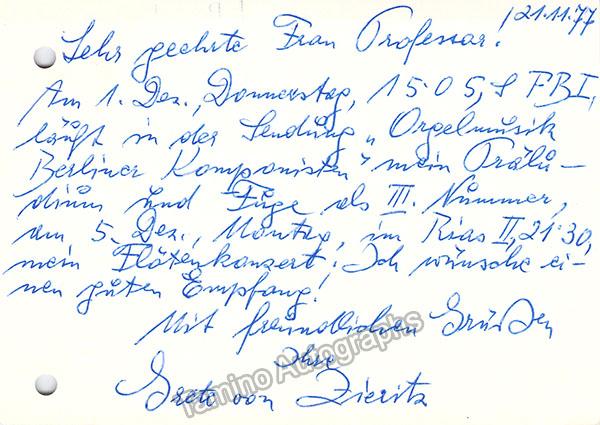 21.11.77
Sehr geehrte Frau Professor!
Am 1. Dez., Donnerstag, 15.05, SFBI,
läuft in der Sendung „Orgelmusik
Berliner Komponisten" mein Prälu-
dium und Fuge als III. Nummer,
am 5. Dez., Montag, im Rias II, 21.30,
mein Flötenkonzert! Ich wünsche ei-
nen guten Empfang!
Mit freundlichen Grüßen
Ihre
Grete von Zieritz
Tamino Autographs